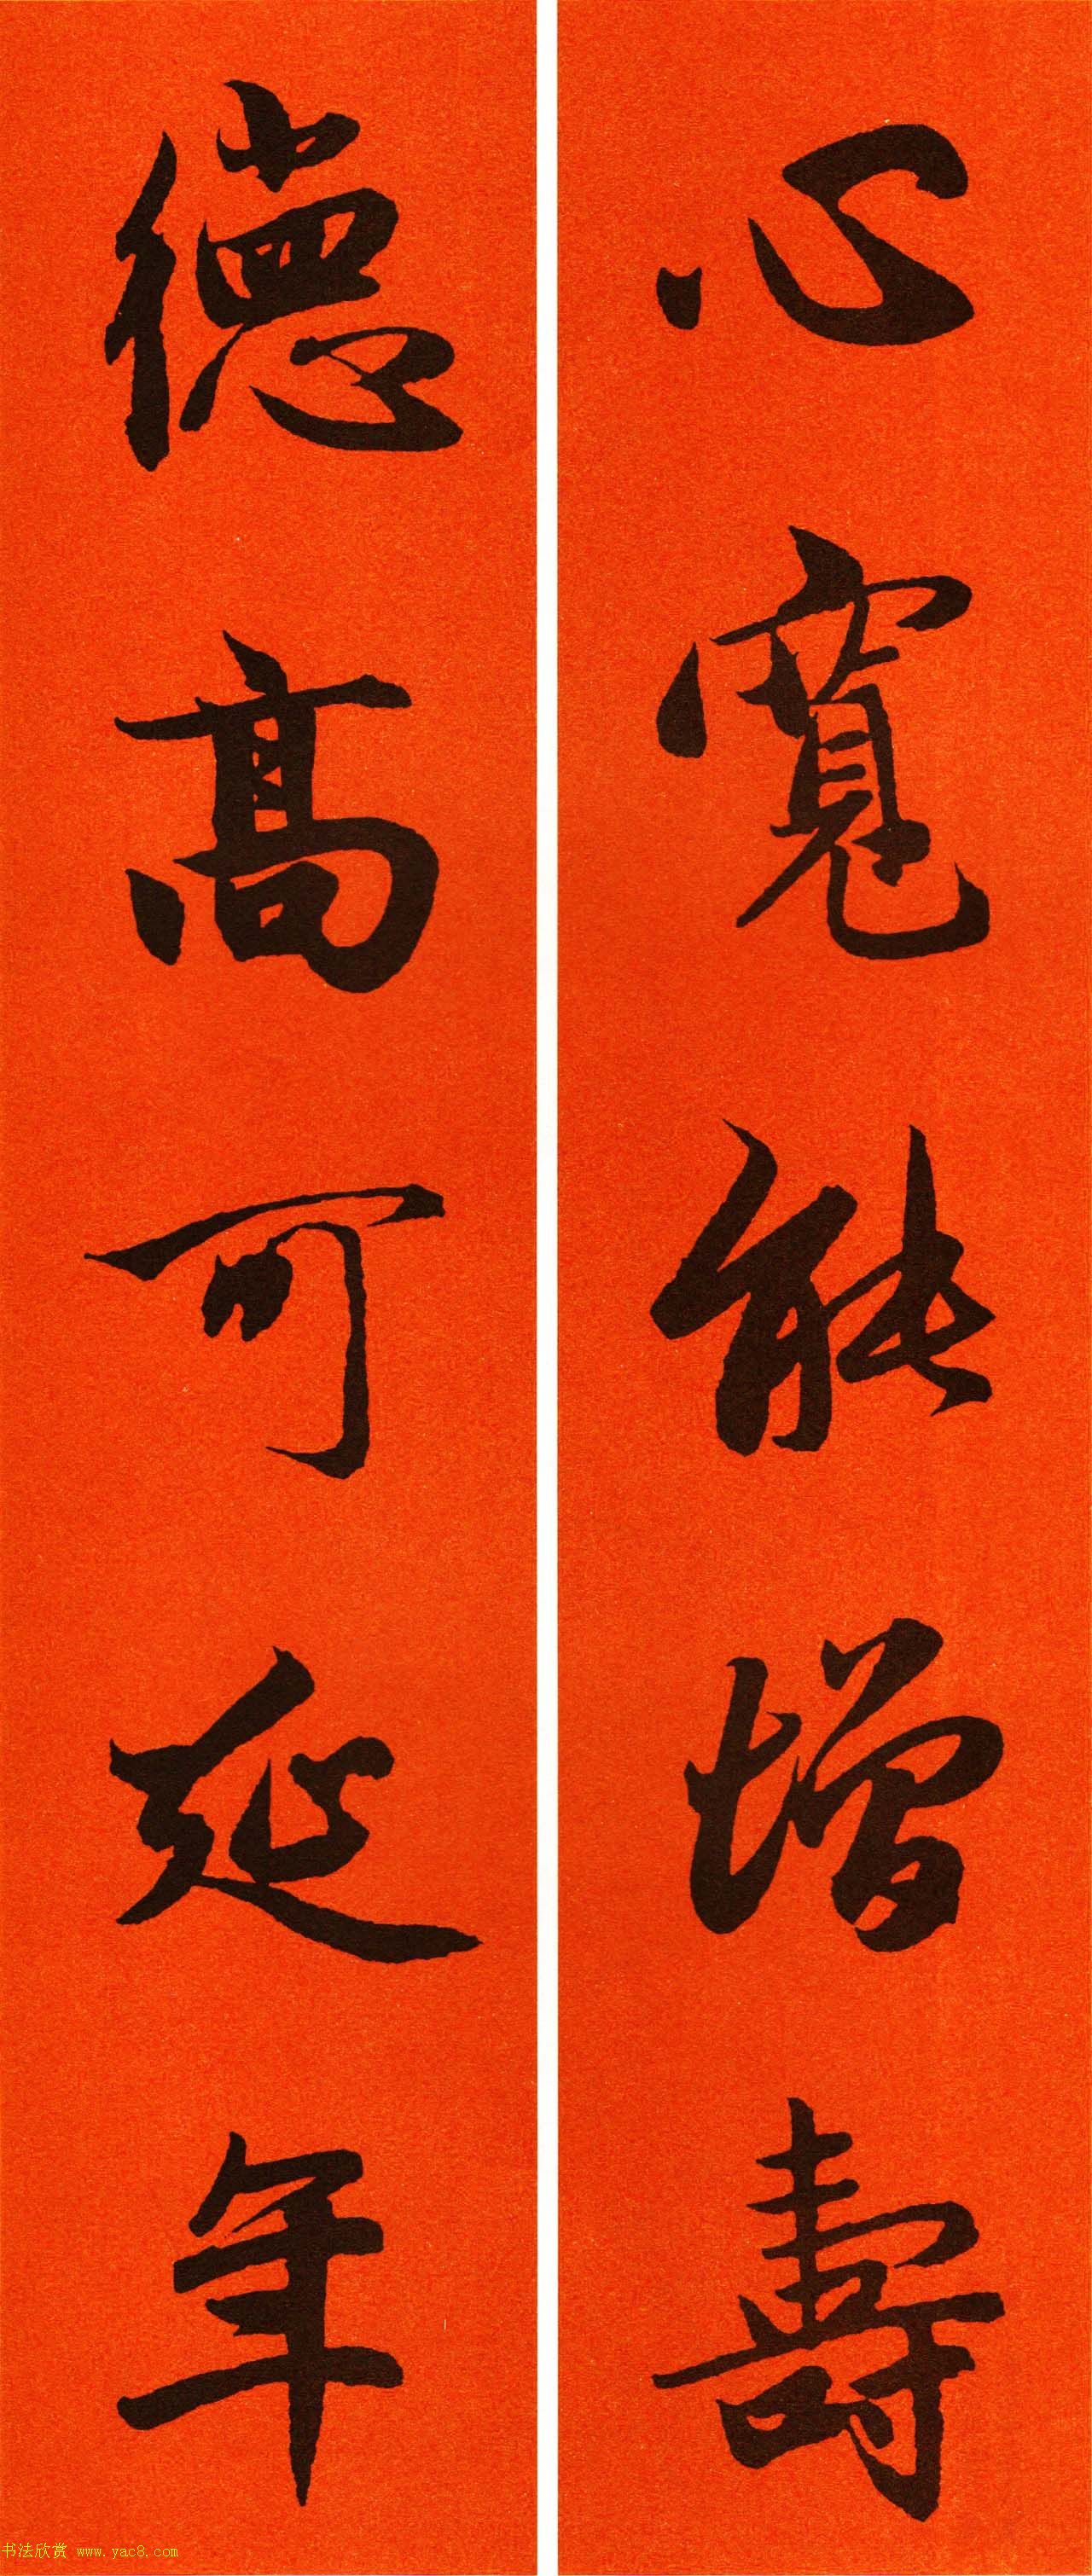 心寬能增壽
德高可延年
书法欣赏 www.yac8.com